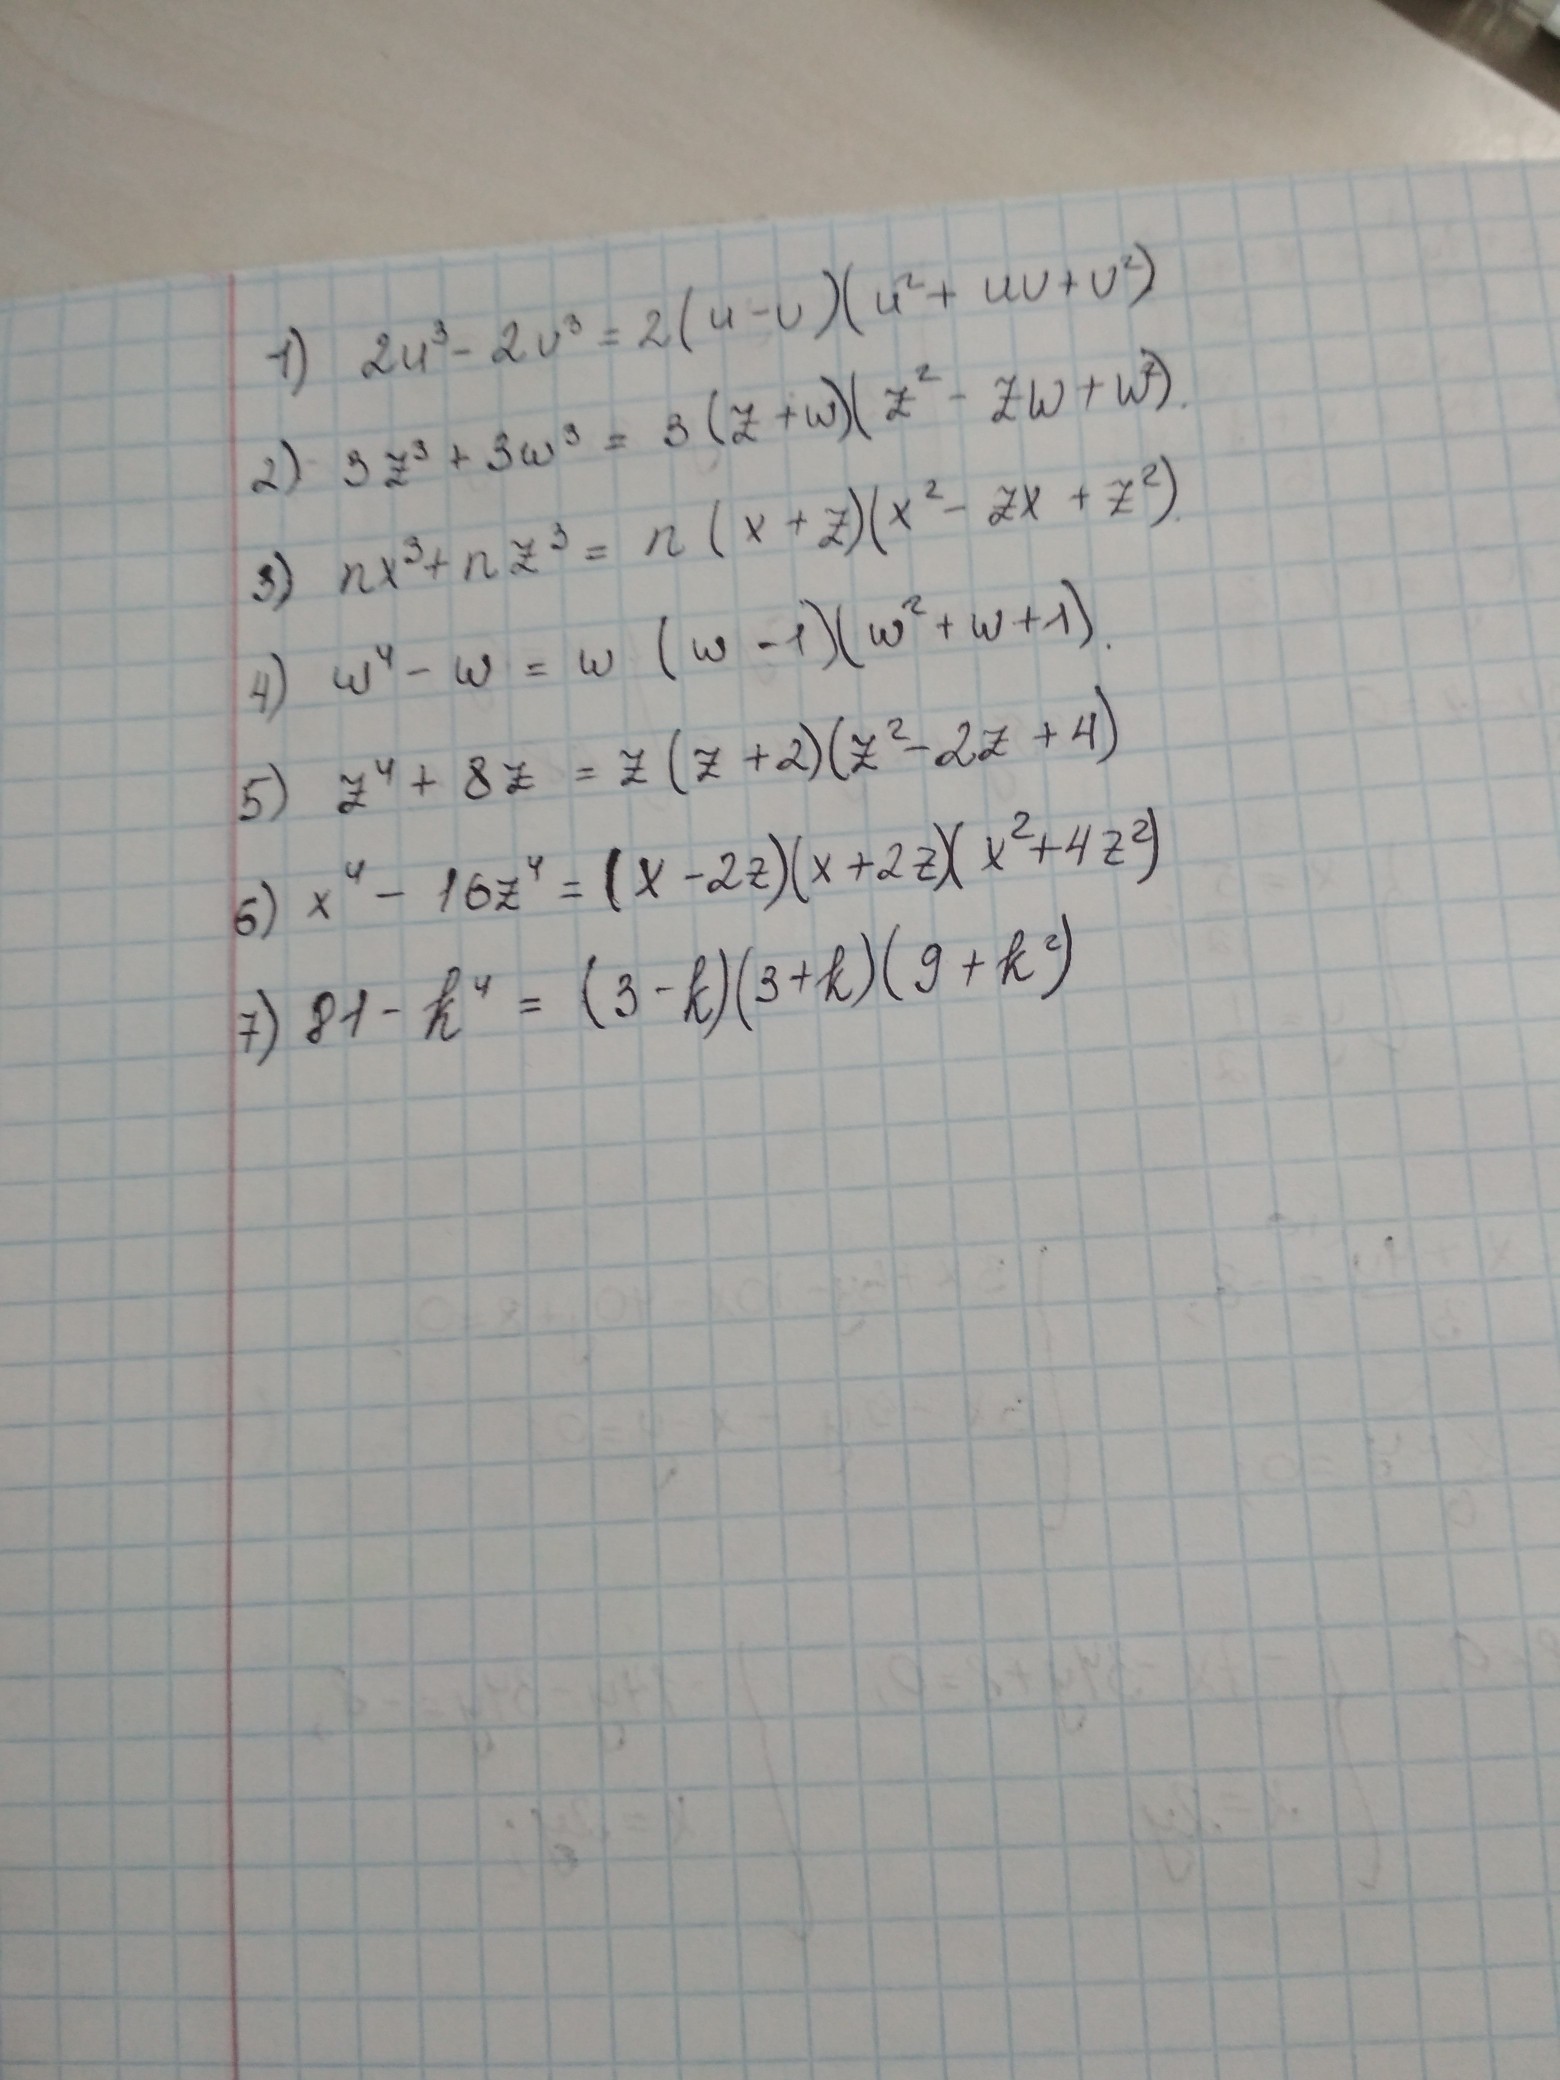 1) 2u³ - 2v³ = 2(u-v)(u² + uv + v²)
2) 3z³ + 3w³ = 3(z+w)(z² - zw + w²).
3) nx³ + nz³ = n(x+z)(x² - zx + z²).
4) w⁴ - w = w(w-1)(w² + w + 1).
5) z⁴ + 8z = z(z+2)(z² - 2z + 4)
6) x⁴ - 16z⁴ = (x-2z)(x+2z)(x² + 4z²)
7) 81 - k⁴ = (3-k)(3+k)(9 + k²)